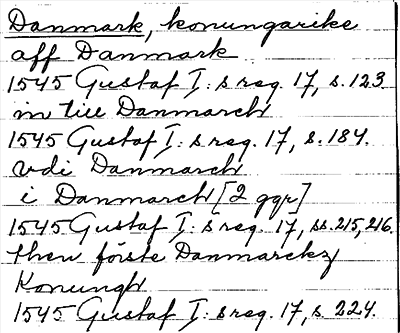 Danmark, konungarike
aff Danmark
1545 Gustaf I: s reg. 17, s. 123.
in till Danmarch
1545 Gustaf I: s reg. 17, s. 184.
vdi Danmarch
i Danmarch [2 ggr]
1545 Gustaf I: s reg. 17, ss. 215, 216.
then förste Danmarckz
Konungh
1545 Gustaf I: s reg. 17, s. 224.